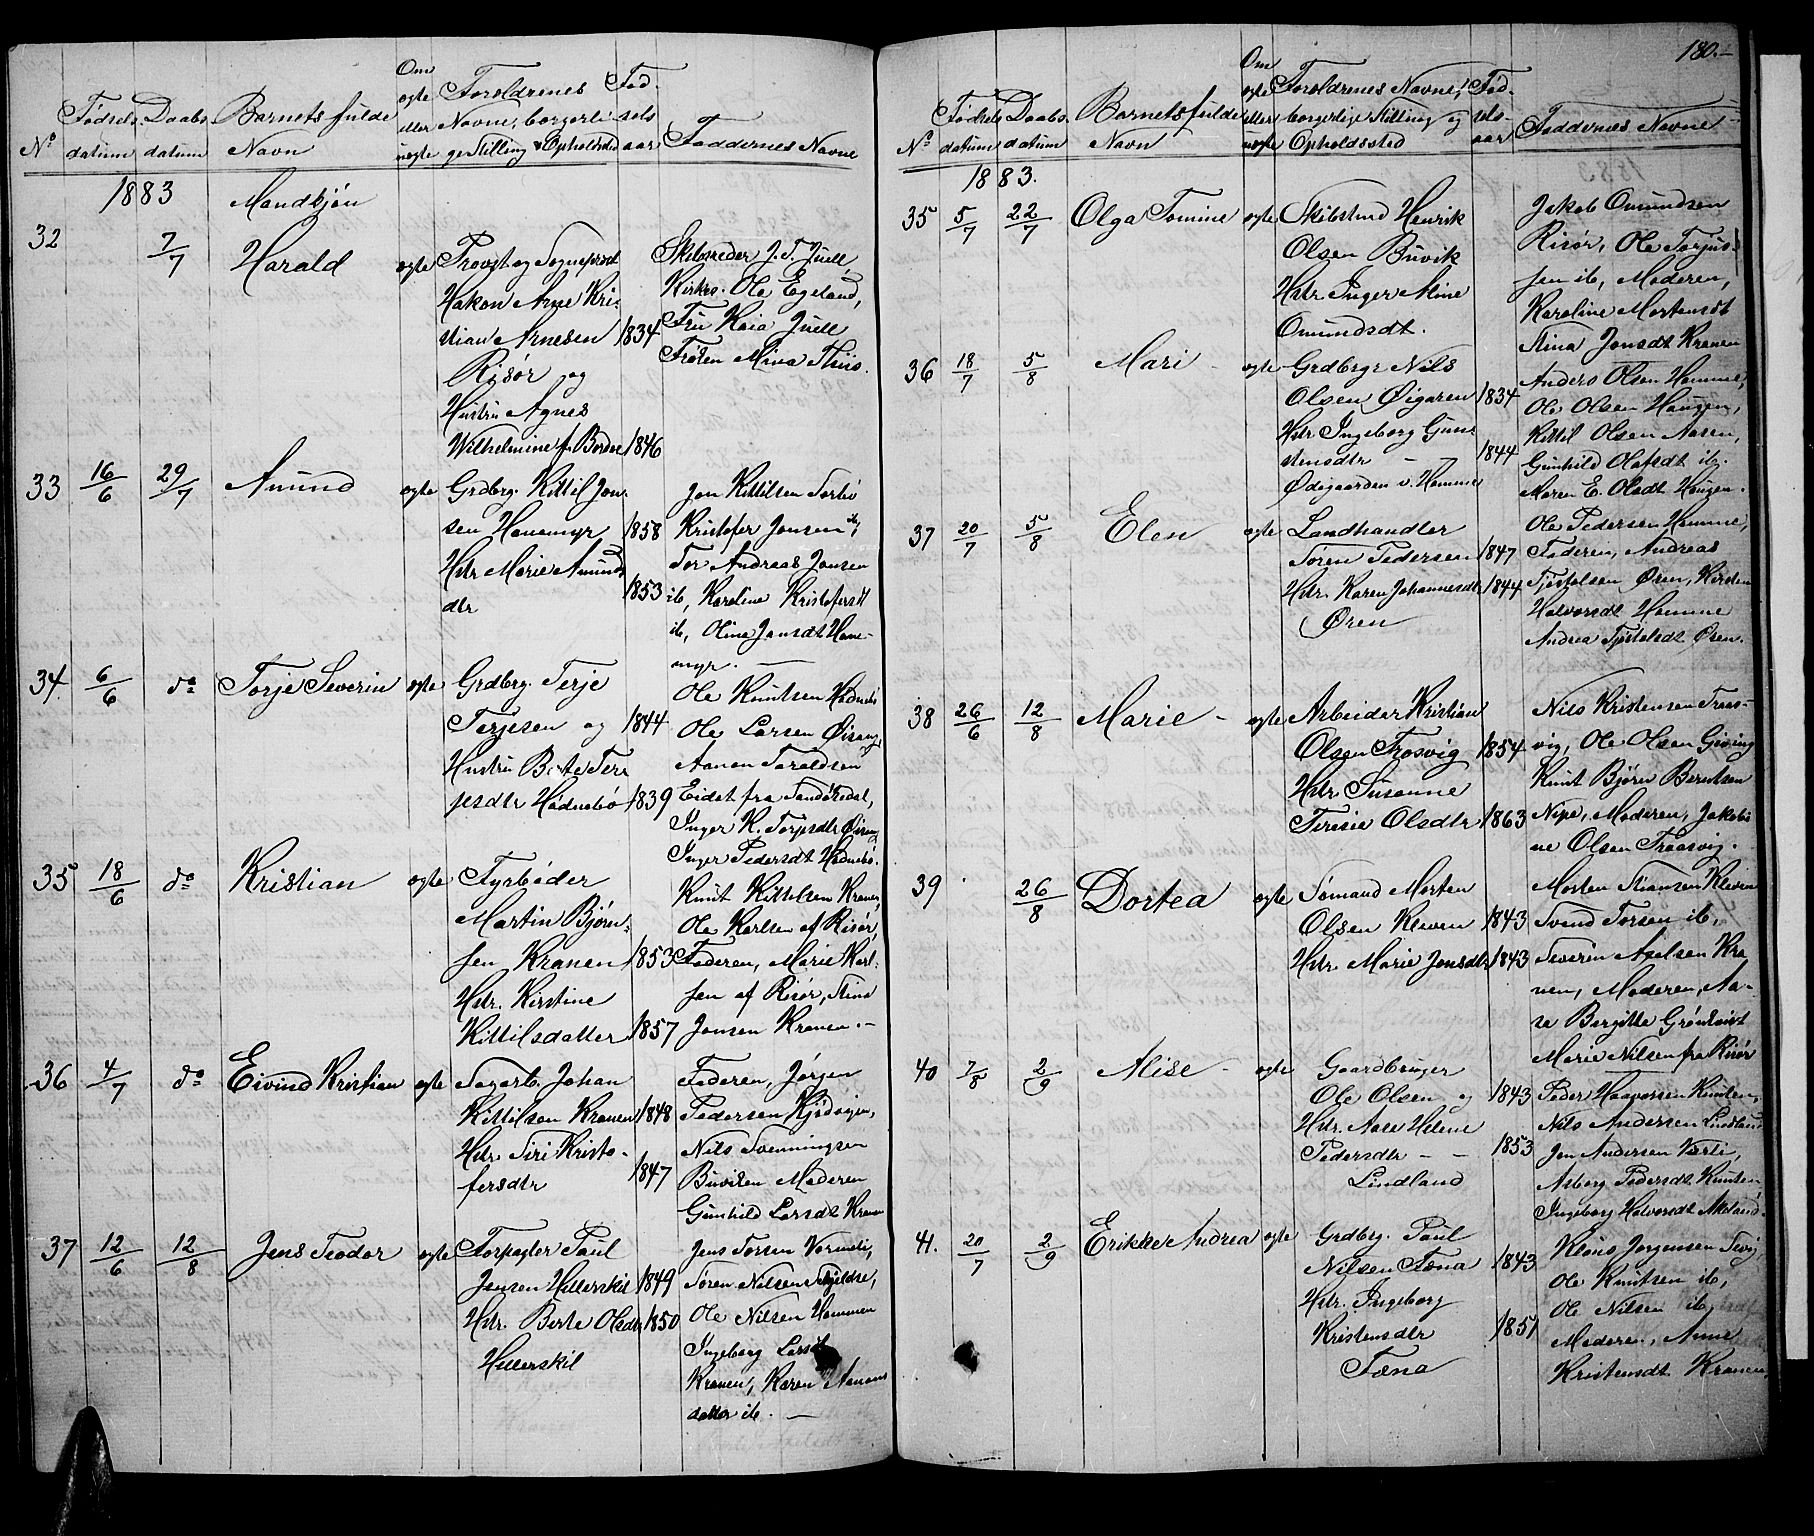 Om
Fødsels- Daabs- Barnets fulde ægte Forældrenes Fød-
eller Navn, borgerli- sels
No datum datum Navn uægte ge Stilling & Opholdsted aar Faddernes Navne
1883 Mandkjøn
32 7/7 Harald ægte Provst og Sognepræst
Hakon Arne Kri-
stian Arnesen 1834
Risør og
Hustru Agnes
Wilhelmine f. 1846
Skibsreder J. F. Juell
Kirkes. Ole Egeland,
Fru Kaia Juell
Frøken Mina Thiis.
33 16/6 29/7 Amund ægte Grdbrg. Kittil Jon-
sen Hanemyr 1858
Hstr Marie Amunds
dtr 1853
Jon Kittilsen
Kristofer Jonsen ib,
Tor Andreas Jonsen
ib, Karoline Kristofersdt
ib, Olina Jonsdt Hane-
myr. —
34 6/6 do Torje Severin ægte Grdbrg. Terje
Terjesen og 1844
Hustru Berte Ter-
jesdtr Hødnebø 1839
Ole Knutsen Hødnebø
Ole Larsen Øisang,
Aanon Taraldsen
Eidet fra Søndeled,
Inger K. Torjusdtr Øisang
Inger Pedersdt Hødnebø.
35 18/6 do Kristian ægte Fyrbøder
Martin Bjørn-
sen Kranen 1853
Hstr. Kirstine
Kittilsdatter 1857
Knut Kittelsen Kranen,
Ole Karlsen af Risør,
Faderen, Marie Karl-
sen af Risør, Stina
Jonsen Kranen. —
36 4/7 do Eivind Kristian ægte Sagarb. Johan
Kittilsen Kranen 1848
Hstr. Siri Kristo-
fersdtr 1847
Faderen, Jørgen
Pedersen
Nils Svenningsen
Buviken Moderen
Gunhild Larsdt Kranen
37 12/6 12/8 Jens Teodor ægte Forpagter Paul
Jensen Hellerskil 1849
Hstr. Berte Olsdtr 1850
Hellerskil
Jens Torsen
Søren Nilsen
Ole Nilsen Hommen
Ingeborg Larsdt
Kranen, Karen Aanons
datter ib. —
180. —
Om
Fødsels Daabs- Barnets fulde ægte Forældrenes Navne, Fød-
eller borgerlige Stilling og sels-
No datum datum Navn uægte Opholdssted aar Faddernes Navne
1883.
35 5/7 22/7 Olga Tomine ægte Skibstmd Henrik
Olsen Buvik
Hstr. Inger Aline
Omundsdt.
Jakob Omundsen
Risør, Ole Torjus-
sen ib, Moderen,
Karoline Mortensdt
Stina Jonsdt Kranen
36 18/7 5/8 Mari - ægte Grdbrgr Nils
Olsen Øigaren 1834
Hstr Ingeborg Gun-
stensdtr — — 1844
Ødegaarden v. Homme
Anders Olsen Homme,
Ole Olsen Haugen,
Kittil Olsen Aasen,
Gunhild Olafsdt ib.
Maren E. Olsdt Haugen.
37 20/7 5/8 Elen ægte Landhandler
Søren Pedersen 1847
Hstr. Karen Johannesdtr 1844
Øren
Ole Pedersen Homme,
Faderen, Andreas
Tjøstolsen Øren, Kirsten
Halvorsdt Homme
Andrea Tjøstolsdt Øren.
38 26/6 12/8 Marie - ægte Arbeider Kristian
Olsen Trosvig 1854
Hstr. Susanne
Teresie Olsdtr 1863
Nils Kristensen Traas-
vig, Ole Olsen Giving
Knut Bjørn Berntsen
Nipe, Moderen, Jakobi
ne Olsen Traasvig.
39 26/8 Dortea ægte Sømand Morten
Olsen Kleven 1843
Hstr. Marie Jensdtr 1843
Morten Stiansen Kleven
Svend Torsen ib,
Severin Axelsen Kra
nen, Moderen, Aa-
se Bergitte
Marie Nilsen fra Risør
40 7/8 2/9 Alise - ægte Gaardbruger
Ole Olsen og 1843
Hstr. Aase Helene
Pedersdtr — — 1853
Lindland
Peder Haavorsen
Nils Andersen Lindland
Jon Andersen
Asborg Pedersdt
Ingeborg Halvorsdt
41. 20/7 2/9 Erikke Andrea ægte Grdbrg. Paul
Nilsen Fona 1843
Hstr. Ingeborg
Kristensdtr 1857
Fona
Kløus Jørgensen
Ole Knutsen ib,
Ole Nilsen ib,
Moderen, Anne
Kristensdt Kranen,